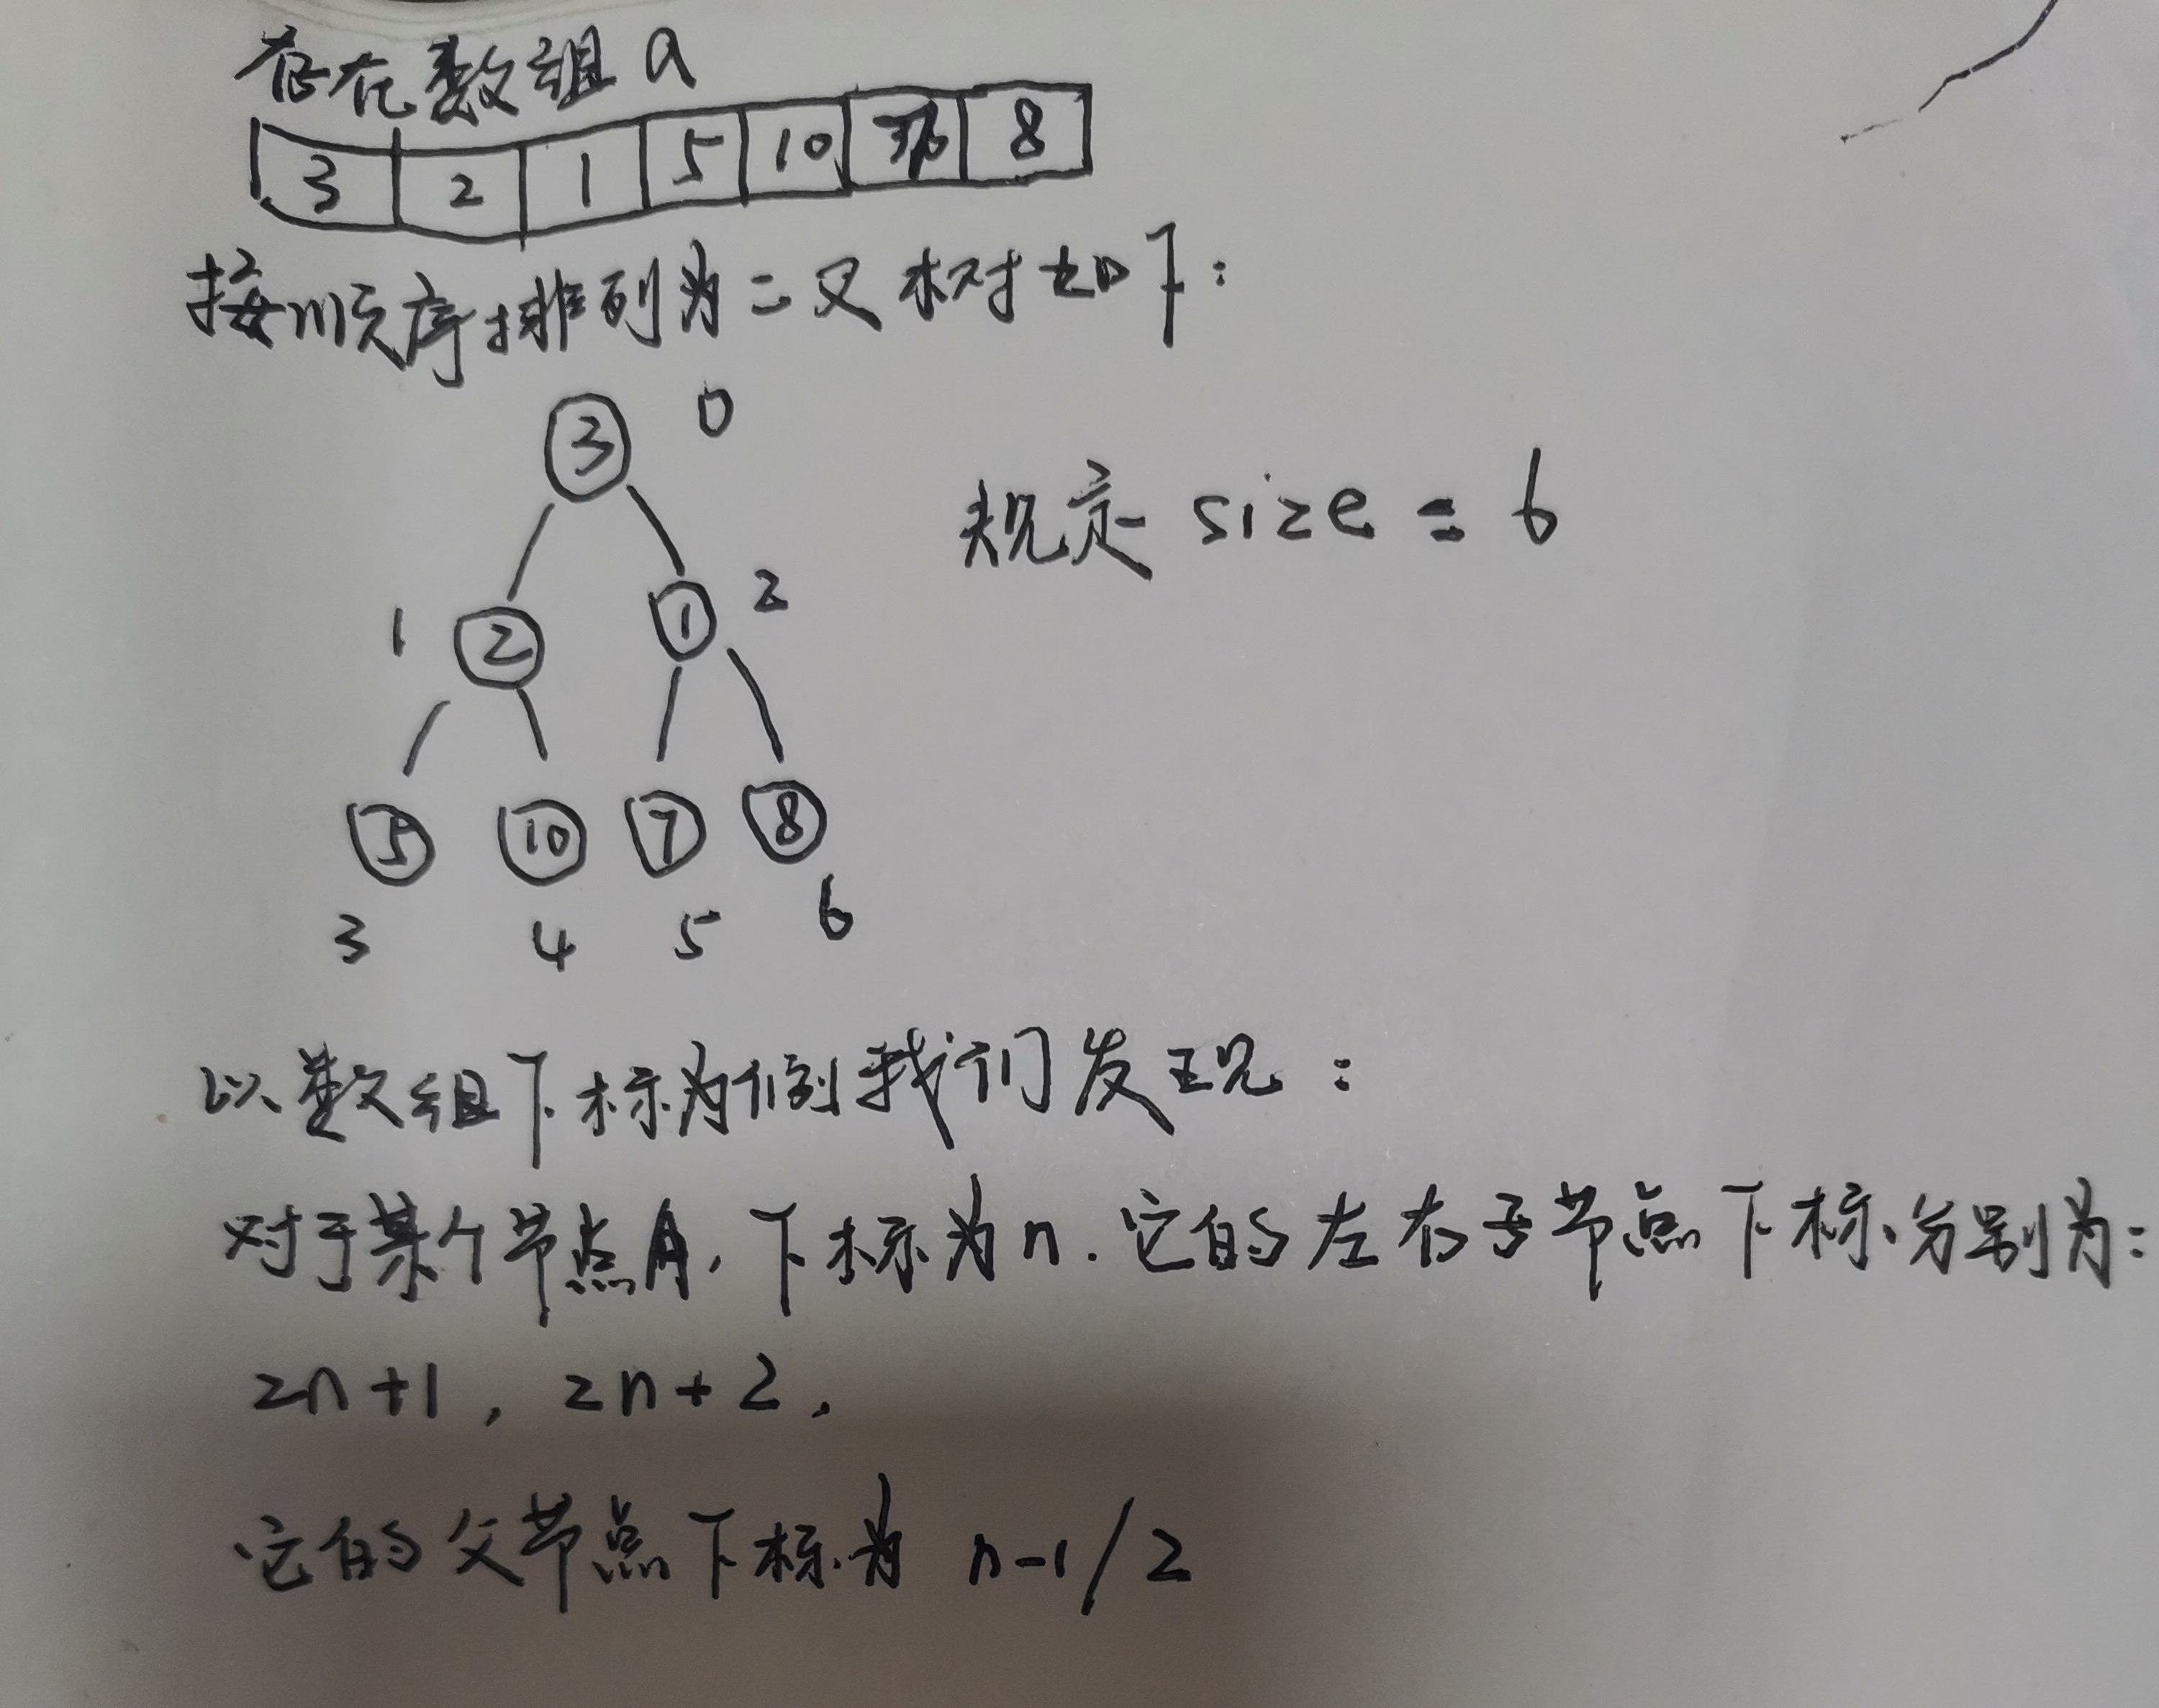 存在数组a
3 2 1 5 10 8
按顺序排列为二叉树如下:
3 0
规定 size = 6
1 2 1 2
5 10 7 8
3 4 5 6
以数组下标为例我们发现:
对于某个节点A,下标为n.它的左右子节点下标分别为:
2n+1, 2n+2,
它的父节点下标为 n-1/2